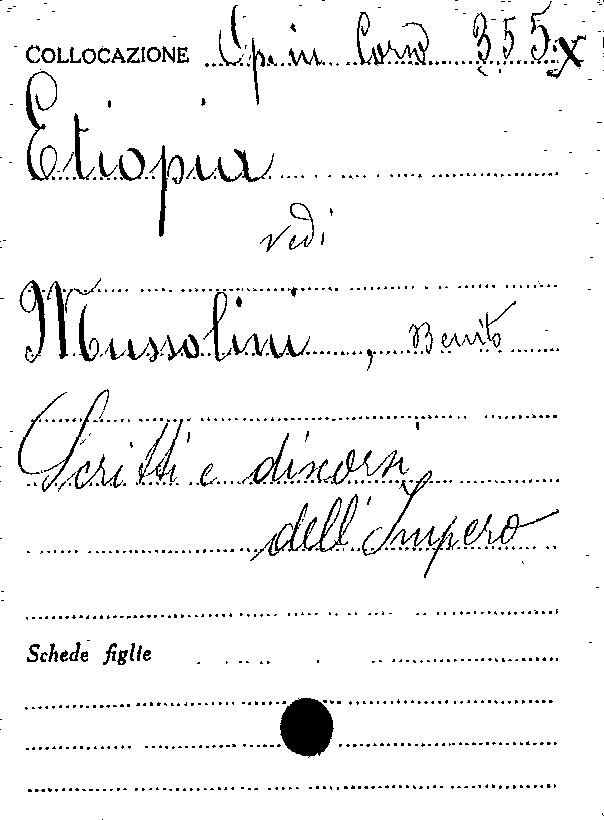 COLLOCAZIONE Op. in Corso 355.X
Etiopia
vedi
Mussolini, Benito
Scritti e discorsi
dell'Impero
Schede figlie